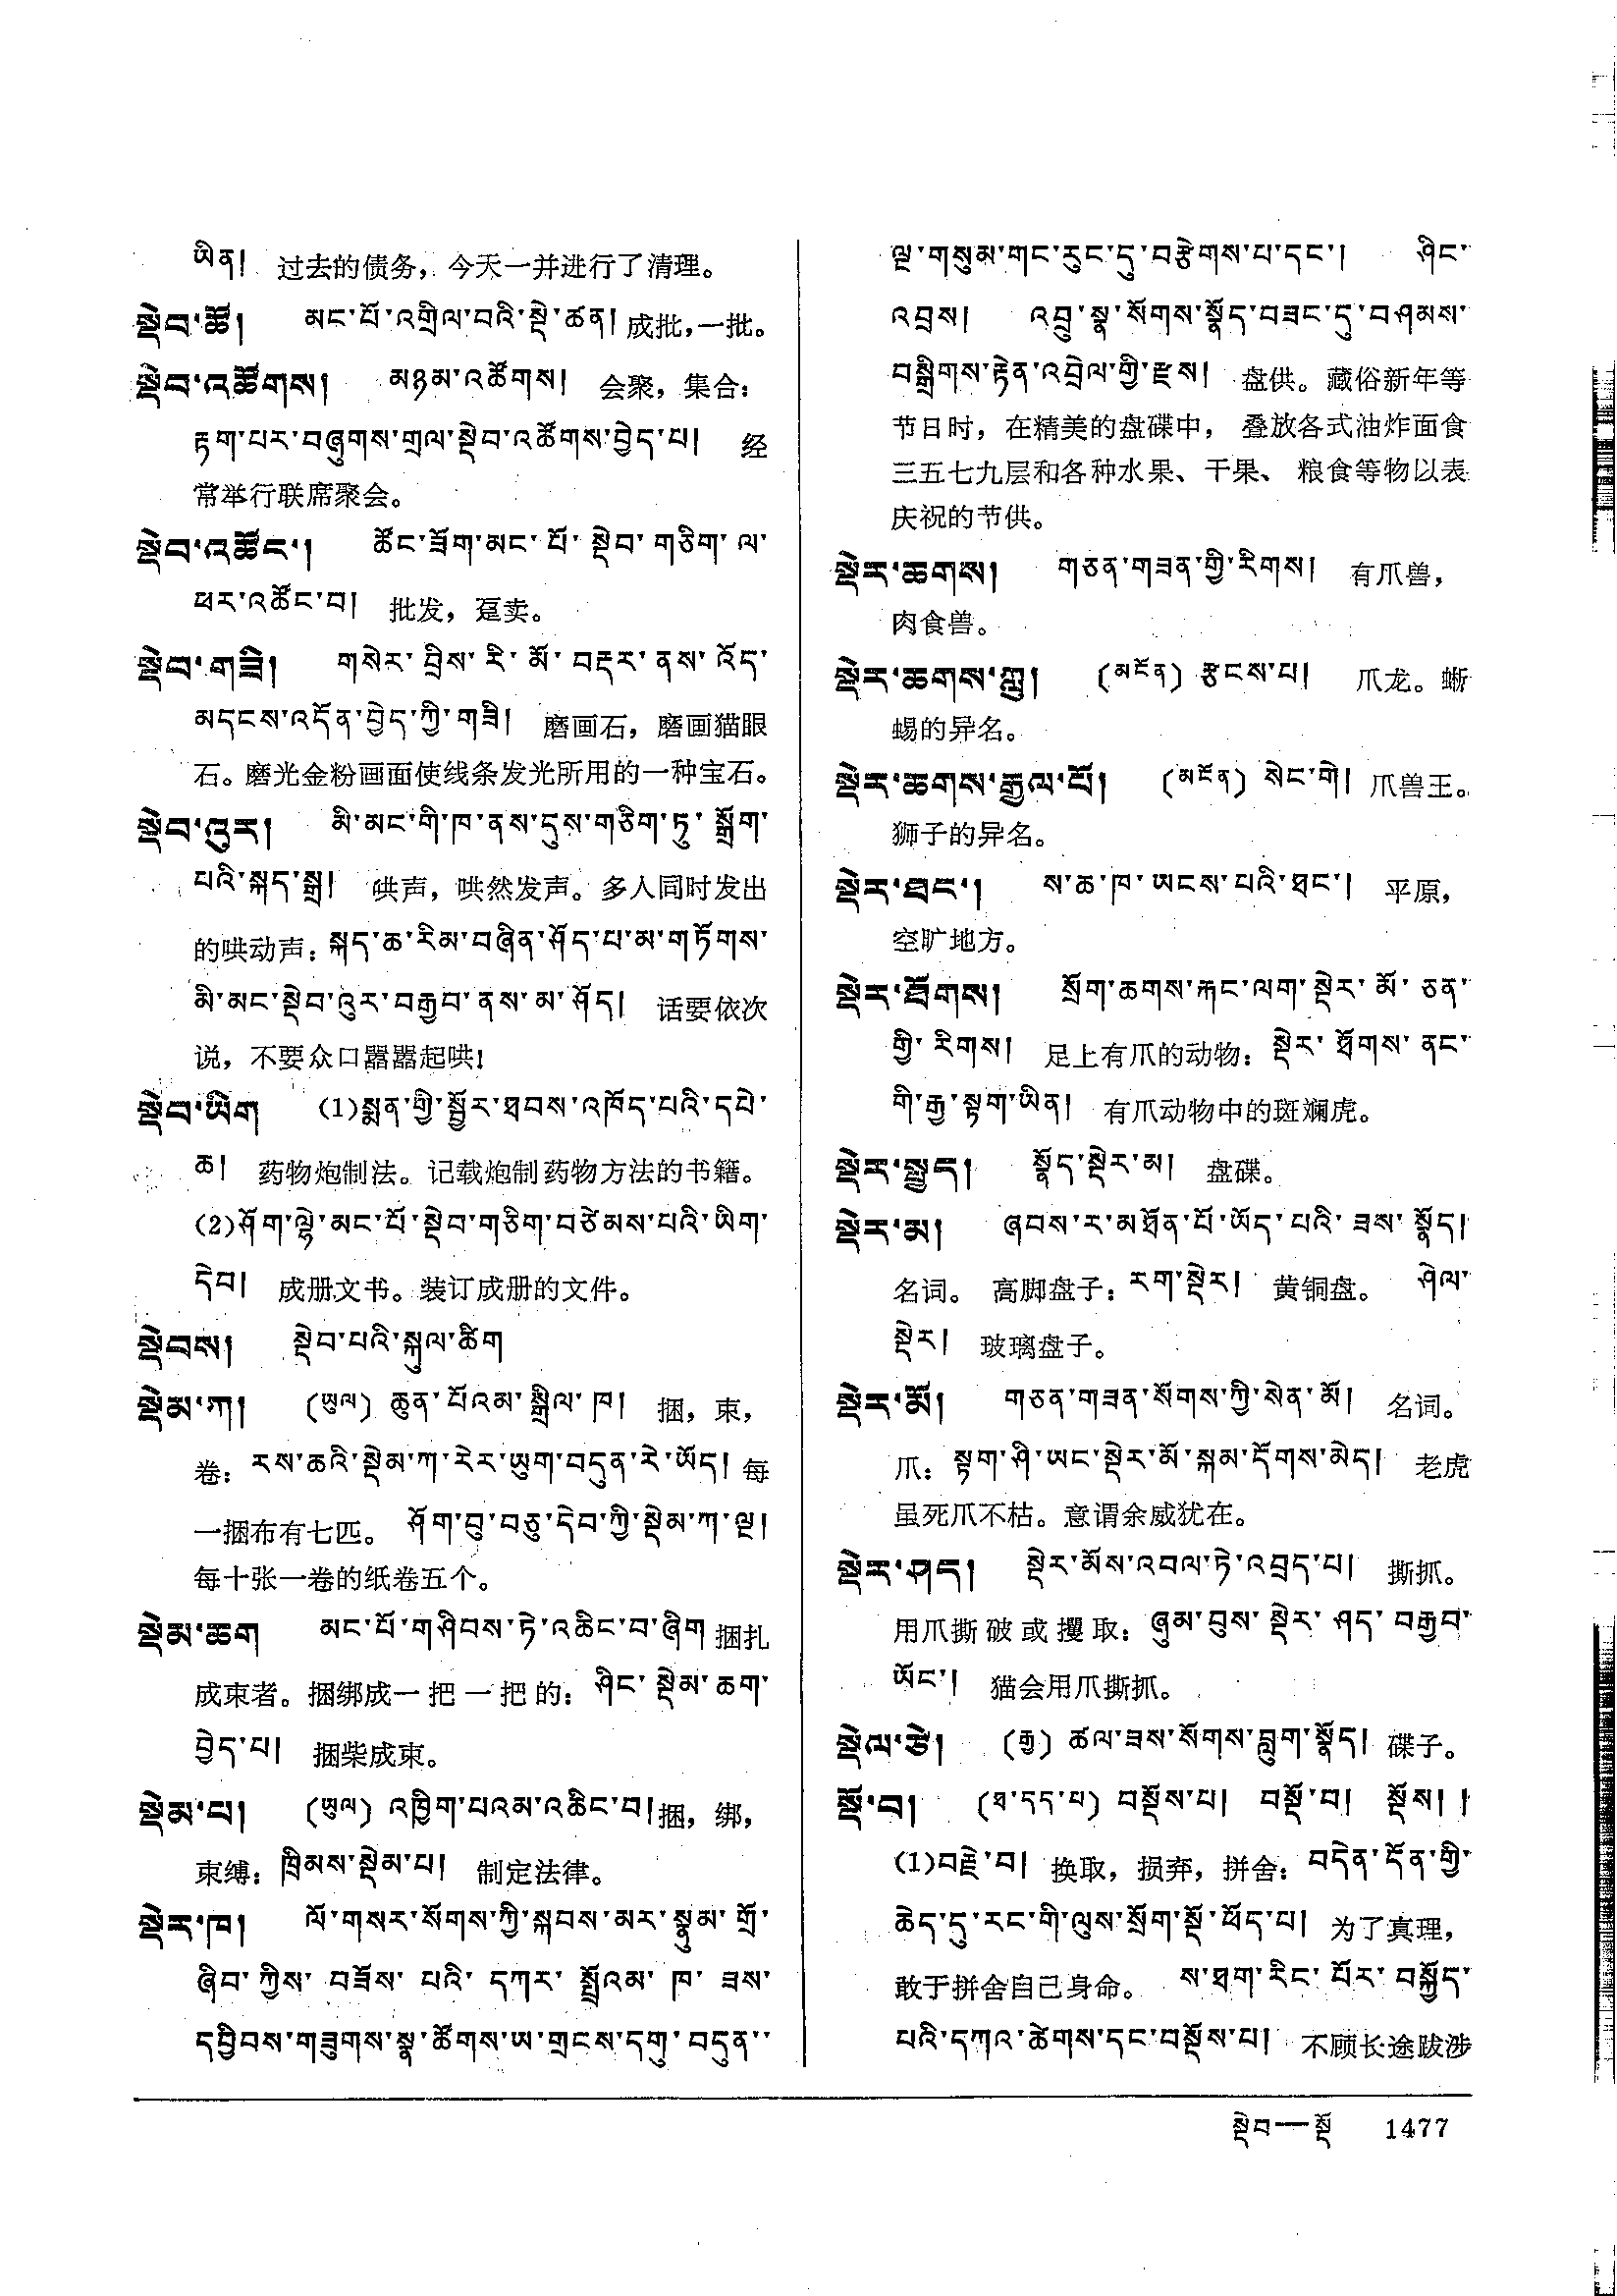 ཡིན། 过去的债务，今天一并进行了清理。
སྡེབ་ཚོ། མང་པོ་འགྲིལ་བའི་སྡེ་ཚན། 成批，一批。
སྡེབ་འཚོགས། མཉམ་འཚོགས། 会聚，集合：
རྟག་པར་བཞུགས་གྲལ་སྡེབ་འཚོགས་བྱེད་པ། 经
常举行联席聚会。
སྡེབ་འཚོང་། ཚོང་ཟོག་མང་པོ་སྡེབ་གཅིག་ལ་
ཕར་འཚོང་བ། 批发，趸卖。
སྡེབ་གཟི། གསེར་བྲིས་རི་མོ་བརྡར་ནས་འོད་
མདངས་འདོན་བྱེད་ཀྱི་གཟི། 磨画石，磨画猫眼
石。磨光金粉画面使线条发光所用的一种宝石。
སྡེབ་འུར། མི་མང་གི་ཁ་ནས་དུས་གཅིག་ཏུ་སྒྲོག་
པའི་སྐད་སྒྲ། 哄声，哄然发声。多人同时发出
的哄动声：སྐད་ཆ་རིམ་བཞིན་ཤོད་པ་མ་གཏོགས་
མི་མང་སྡེབ་འུར་བརྒྱབ་ནས་མ་ཤོད། 话要依次
说，不要众口嚣嚣起哄！
སྡེབ་ཡིག (1)སྨན་གྱི་སྦྱོར་ཐབས་འཁོད་པའི་དཔེ་
ཆ། 药物炮制法。记载炮制药物方法的书籍。
(2)ཤོག་ལྷེ་མང་པོ་སྡེབ་གཅིག་བཙེམས་པའི་ཡིག་
དེབ། 成册文书。装订成册的文件。
སྡེབས། སྡེབ་པའི་སྐུལ་ཚིག
སྡེམ་ཀ། (ཡུལ) ཆུན་པོའམ་སྒྲིལ་ཁ། 捆，束，
卷：རས་ཆའི་སྡེམ་ཀ་རེར་ཡུག་བདུན་རེ་ཡོད། 每
一捆布有七匹。 ཤོག་བུ་བཅུ་དེབ་ཀྱི་སྡེམ་ཀ་ལྔ།
每十张一卷的纸卷五个。
སྡེམ་ཆག མང་པོ་གཤིབས་ཏེ་འཆིང་བ་ཞིག 捆扎
成束者。捆绑成一把一把的：ཤིང་སྡེམ་ཆག་
བྱེད་པ། 捆柴成束。
སྡེམ་པ། (ཡུལ) འཁྱིག་པའམ་འཆིང་བ། 捆，绑，
束缚：ཁྲིམས་སྡེམ་པ། 制定法律。
སྡེར་ཁ། ལོ་གསར་སོགས་ཀྱི་སྐབས་མར་སྣུམ་གྲོ་
ཞིབ་ཀྱིས་བཟོས་པའི་དཀར་སྤྲོའམ་ཁ་ཟས་
དབྱིབས་གཟུགས་སྣ་ཚོགས་ཨ་གྲངས་དགུ་བདུན་
ལྔ་གསུམ་གང་རུང་དུ་བརྩེགས་པ་དང་། ཤིང་
འབྲས། འབྲུ་སྣ་སོགས་སྣོད་བཟང་དུ་བཤམས་
བསྒྲིགས་རྟེན་འབྲེལ་གྱི་རྫས། 盘供。藏俗新年等
节日时，在精美的盘碟中，叠放各式油炸面食
三五七九层和各种水果、干果、粮食等物以表
庆祝的节供。
སྡེར་ཆགས། གཅན་གཟན་གྱི་རིགས། 有爪兽，
肉食兽。
སྡེར་ཆགས་ཀླུ། (མངོན) རྩངས་པ། 爪龙。蜥
蜴的异名。
སྡེར་ཆགས་རྒྱལ་པོ། (མངོན) སེང་གེ། 爪兽王。
狮子的异名。
སྡེར་ཐང་། ས་ཆ་ཁ་ཡངས་པའི་ཐང་། 平原，
空旷地方。
སྡེར་ཐོགས། སྲོག་ཆགས་རྐང་ལག་སྡེར་མོ་ཅན་
གྱི་རིགས། 足上有爪的动物：སྡེར་ཐོགས་ནང་
གི་རྒྱ་སྟག་ཡིན། 有爪动物中的斑斓虎。
སྡེར་སྤྱད། སྣོད་སྡེར་མ། 盘碟。
སྡེར་མ། ཞབས་ར་མཐོན་པོ་ཡོད་པའི་ཟས་སྣོད།
名词。高脚盘子：རག་སྡེར། 黄铜盘。 ཤེལ་
སྡེར། 玻璃盘子。
སྡེར་མོ། གཅན་གཟན་སོགས་ཀྱི་སེན་མོ། 名词。
爪：སྟག་ཤི་ཡང་སྡེར་མོ་སྐམ་དོགས་མེད། 老虎
虽死爪不枯。意谓余威犹在。
སྡེར་ཤད། སྡེར་མོས་འབལ་ཏེ་འབྲད་པ། 撕抓。
用爪撕破或攫取：ཞུམ་བུས་སྡེར་ཤད་བརྒྱབ་
ཡོང་། 猫会用爪撕抓。
སྡེལ་ཙེ། (རྒྱ) ཚལ་ཟས་སོགས་བླུག་སྣོད། 碟子。
སྡོ་བ། (ཐ་དད་པ) བསྡོས་པ། བསྡོ་བ། སྡོས།།
(1)བརྗེ་བ། 换取，损弃，拼舍：བདེན་དོན་གྱི་
ཆེད་དུ་རང་གི་ལུས་སྲོག་སྡོ་ཕོད་པ། 为了真理，
敢于拼舍自己身命。 ས་ཐག་རིང་པོར་བསྐྱོད་
པའི་དཀའ་ཚེགས་དང་བསྡོས་པ། 不顾长途跋涉
སྡེབ—སྡོ 1477